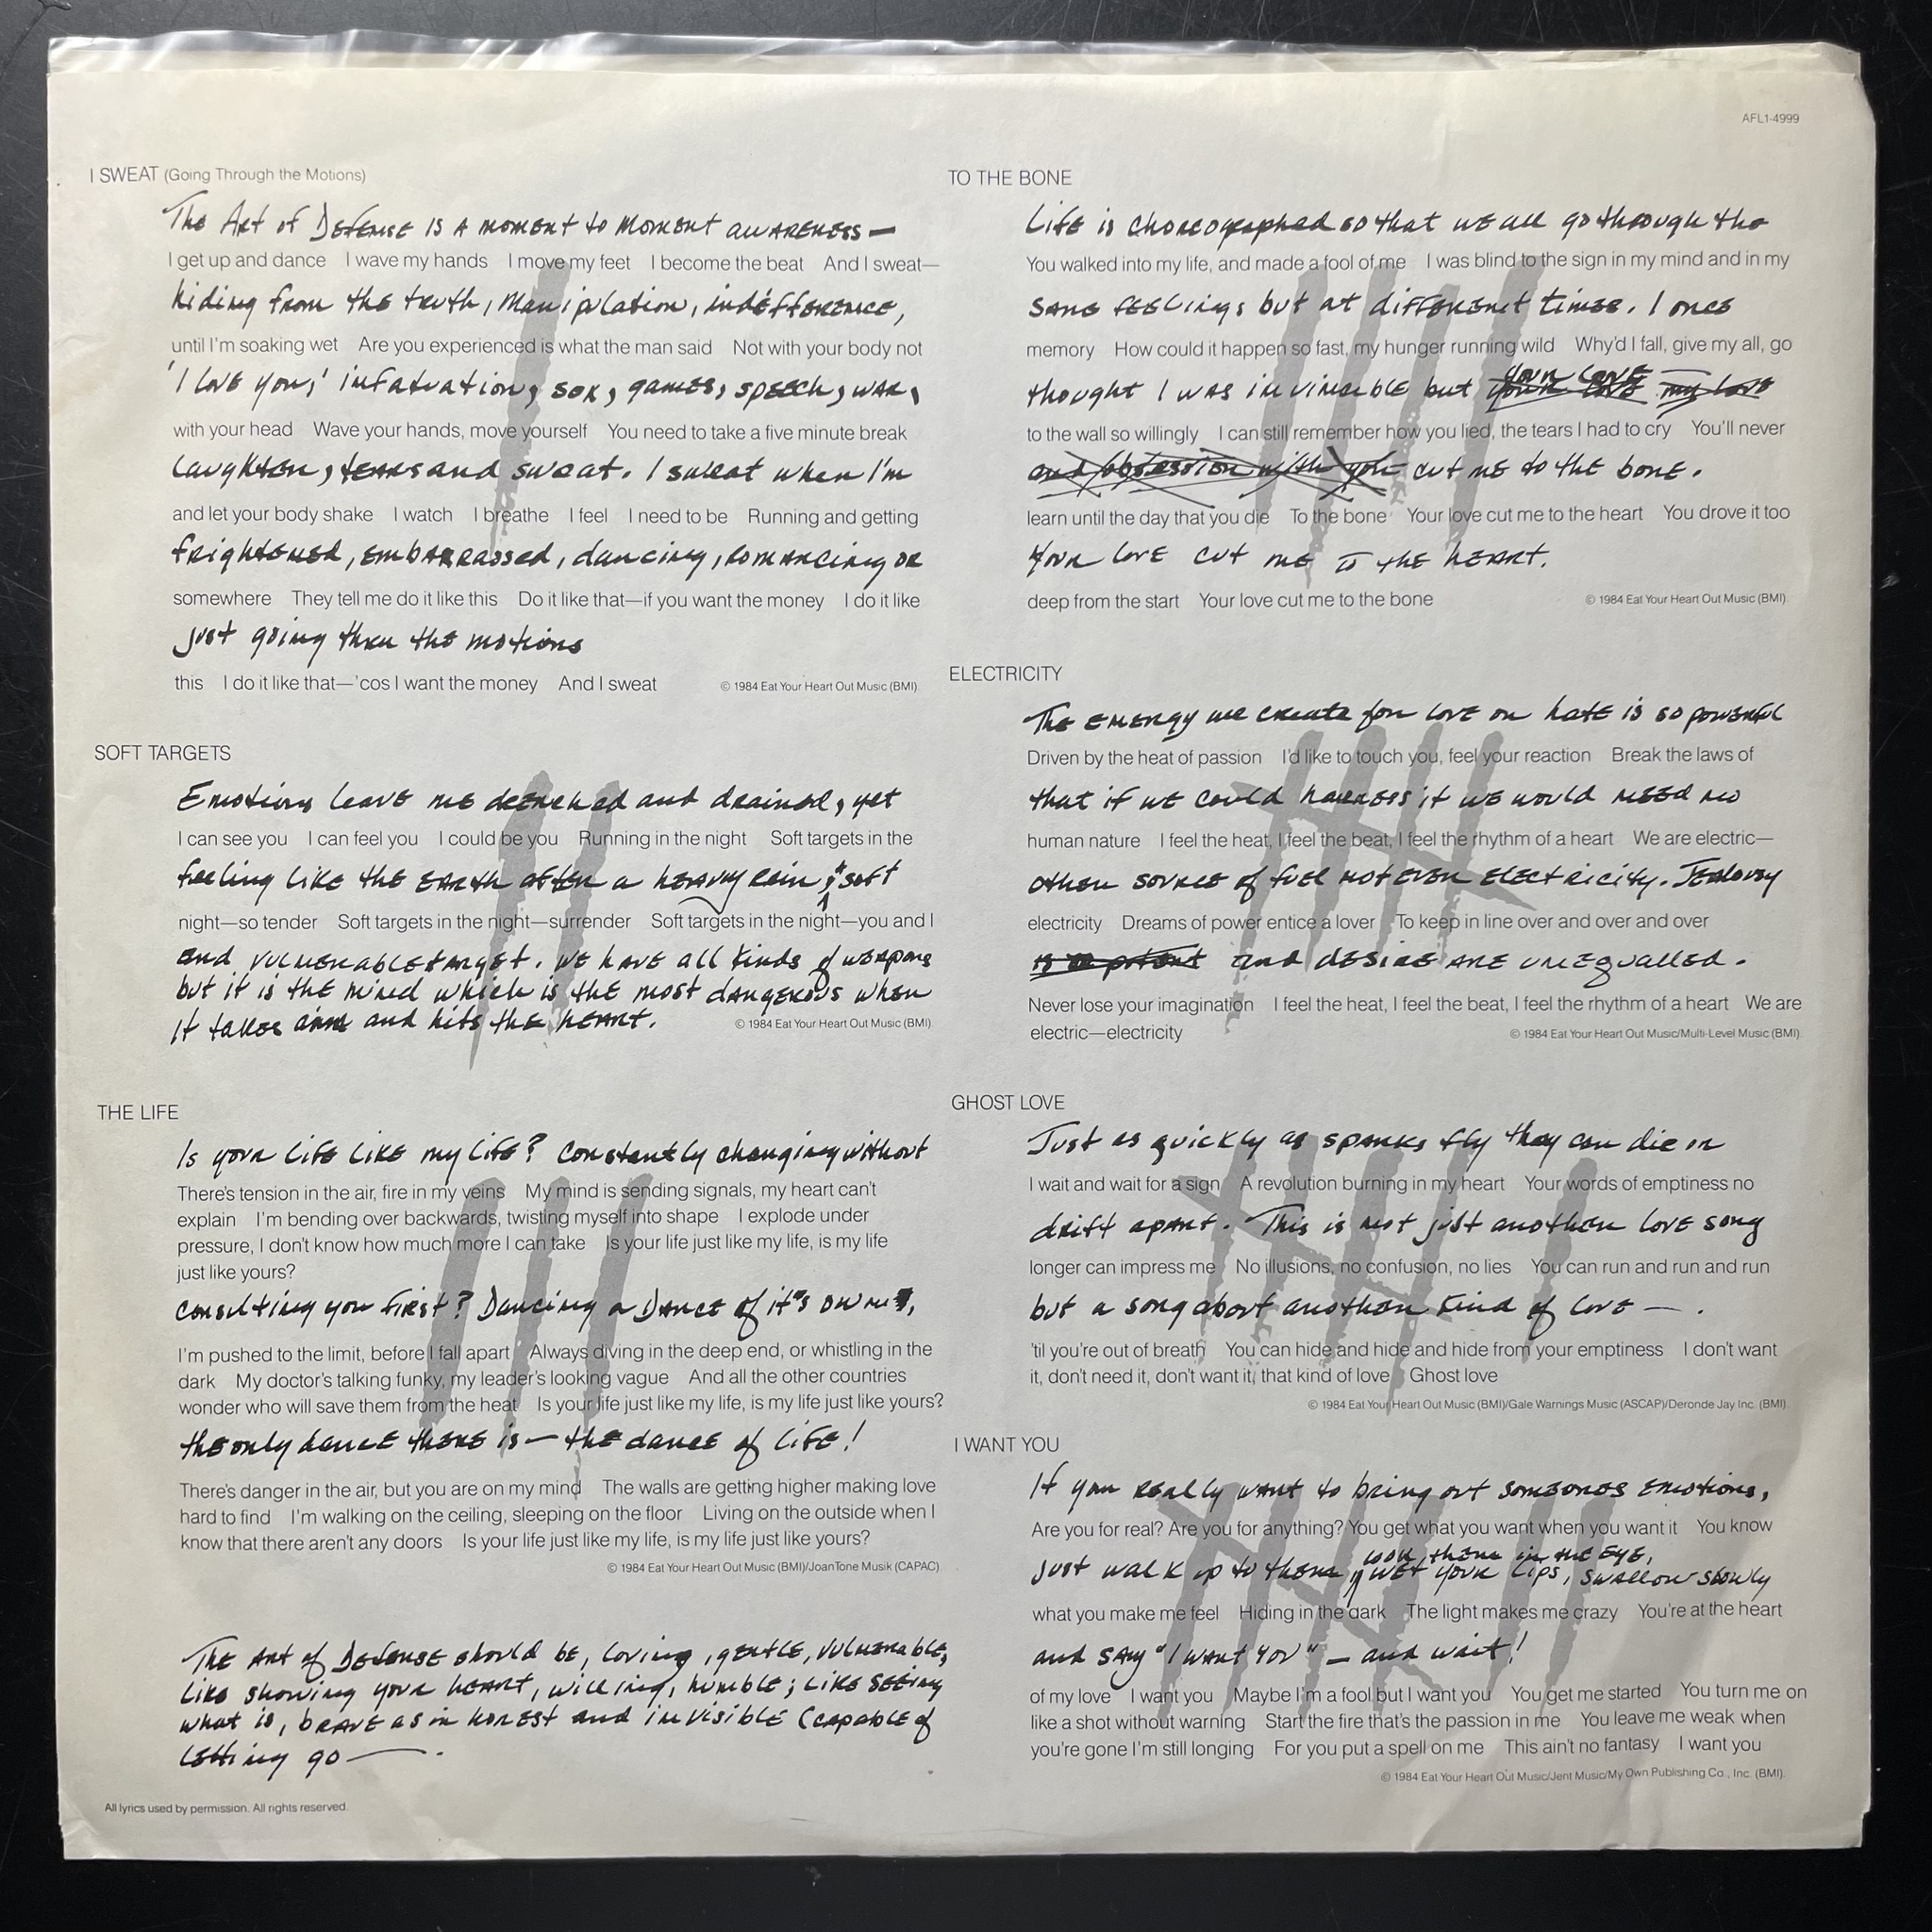 AFL1-4999
I SWEAT (Going Through the Motions)
The Art of Defense is a moment to moment awareness—
I get up and dance I wave my hands I move my feet I become the beat And I sweat—
hiding from the truth, manipulation, indifference,
until I'm soaking wet Are you experienced is what the man said Not with your body not
'I love you,' infatuation, sex, games, speech, war,
with your head Wave your hands, move yourself You need to take a five minute break
laughter, tears and sweat. I sweat when I'm
and let your body shake I watch I breathe I feel I need to be Running and getting
frightened, embarrassed, dancing, romancing or
somewhere They tell me do it like this Do it like that—if you want the money I do it like
just going thru the motions
this I do it like that—'cos I want the money And I sweat © 1984 Eat Your Heart Out Music (BMI)
SOFT TARGETS
Emotions leave me drenched and drained, yet
I can see you I can feel you I could be you Running in the night Soft targets in the
feeling like the earth after a heavy rain; soft
night—so tender Soft targets in the night—surrender Soft targets in the night—you and I
and vulnerable target. We have all kinds of weapons
but it is the mind which is the most dangerous when
it takes aim and hits the heart. © 1984 Eat Your Heart Out Music (BMI)
THE LIFE
Is your life like my life? Constantly changing without
There's tension in the air, fire in my veins My mind is sending signals, my heart can't
explain I'm bending over backwards, twisting myself into shape I explode under
pressure, I don't know how much more I can take Is your life just like my life, is my life
just like yours?
consulting you first? Dancing a Dance of it's own,
I'm pushed to the limit, before I fall apart Always diving in the deep end, or whistling in the
dark My doctor's talking funky, my leader's looking vague And all the other countries
wonder who will save them from the heat Is your life just like my life, is my life just like yours?
the only dance there is— the dance of life!
There's danger in the air, but you are on my mind The walls are getting higher making love
hard to find I'm walking on the ceiling, sleeping on the floor Living on the outside when I
know that there aren't any doors Is your life just like my life, is my life just like yours?
© 1984 Eat Your Heart Out Music (BMI)/JoanTone Musik (CAPAC)
The Art of Defense should be, loving, gentle, vulnerable,
like showing your heart, willing, humble; like seeing
what is, brave as in honest and invisible (capable of
letting go —.
All lyrics used by permission. All rights reserved.
TO THE BONE
Life is choreographed so that we all go through the
You walked into my life, and made a fool of me I was blind to the sign in my mind and in my
same feelings but at different times. I once
memory How could it happen so fast, my hunger running wild Why'd I fall, give my all, go
your love —
thought I was invincible but your love my love
to the wall so willingly I can still remember how you lied, the tears I had to cry You'll never
and obsession with you cut me to the bone.
learn until the day that you die To the bone Your love cut me to the heart You drove it too
Your love cut me to the heart.
deep from the start Your love cut me to the bone © 1984 Eat Your Heart Out Music (BMI).
ELECTRICITY
The energy we create for love or hate is so powerful
Driven by the heat of passion I'd like to touch you, feel your reaction Break the laws of
that if we could harness it we would need no
human nature I feel the heat, I feel the beat, I feel the rhythm of a heart We are electric—
other source of fuel not even electricity. Jealousy
electricity Dreams of power entice a lover To keep in line over and over and over
is so potent and desire are unequalled.
Never lose your imagination I feel the heat, I feel the beat, I feel the rhythm of a heart We are
electric—electricity © 1984 Eat Your Heart Out Music/Multi-Level Music (BMI).
GHOST LOVE
Just as quickly as sparks fly they can die or
I wait and wait for a sign A revolution burning in my heart Your words of emptiness no
drift apart. This is not just another love song
longer can impress me No illusions, no confusion, no lies You can run and run and run
but a song about another kind of love — .
'til you're out of breath You can hide and hide and hide from your emptiness I don't want
it, don't need it, don't want it, that kind of love Ghost love
© 1984 Eat Your Heart Out Music (BMI)/Gale Warnings Music (ASCAP)/Deronde Jay Inc. (BMI).
I WANT YOU
If you really want to bring out someones emotions,
Are you for real? Are you for anything? You get what you want when you want it You know
look them in the eye,
just walk up to them, wet your lips, swallow slowly
what you make me feel Hiding in the dark The light makes me crazy You're at the heart
and say "I want you" — and wait!
of my love I want you Maybe I'm a fool but I want you You get me started You turn me on
like a shot without warning Start the fire that's the passion in me You leave me weak when
you're gone I'm still longing For you put a spell on me This ain't no fantasy I want you
© 1984 Eat Your Heart Out Music/Jent Music/My Own Publishing Co., Inc. (BMI).